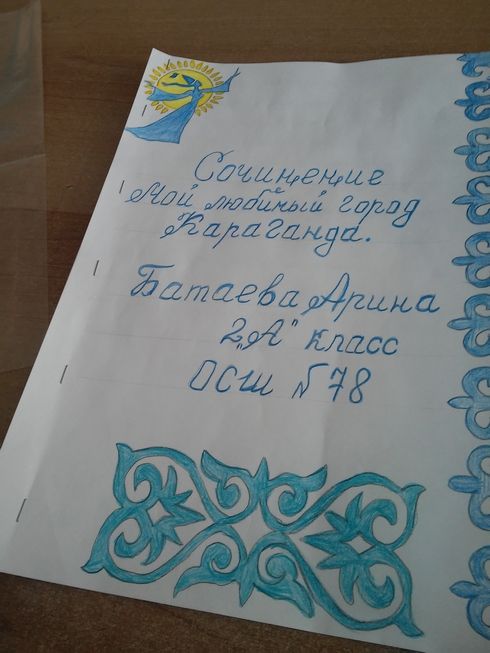 Сочинение
Мой любимый город
Караганда.
Батаева Арина
2 „А" класс
ОСШ № 78